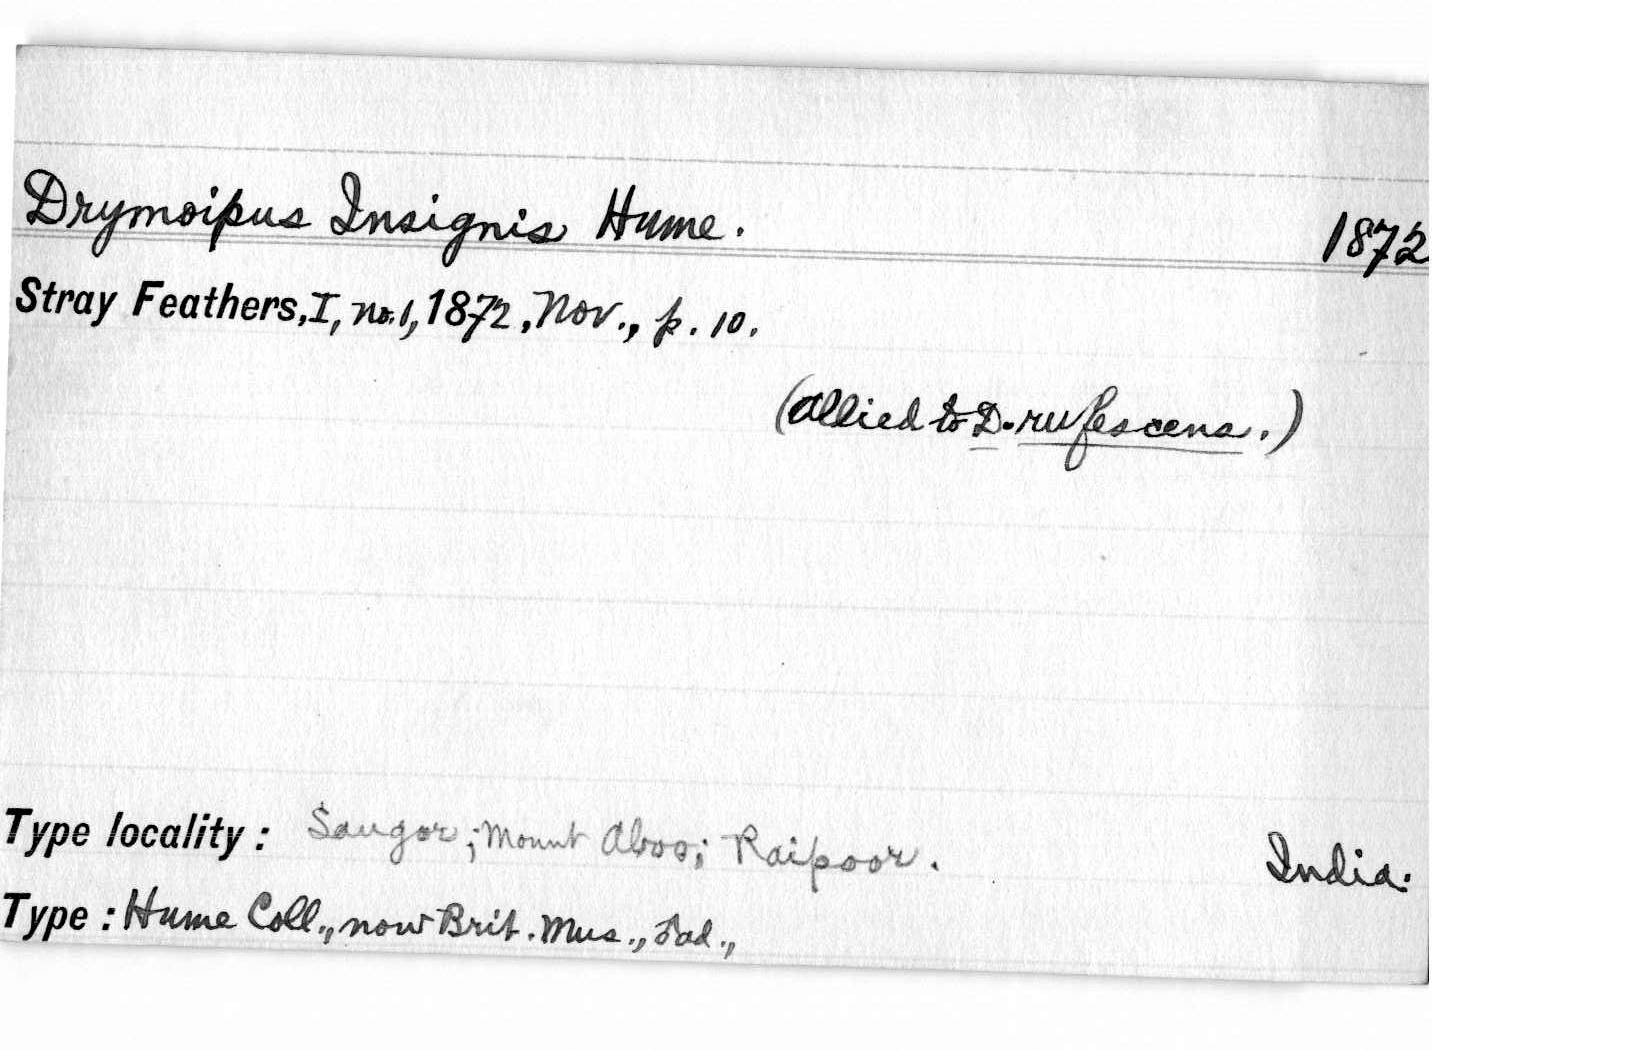 Drymoipus Insignis Hume. 1872
Stray Feathers, I, no. 1, 1872, Nov., p. 10.
(allied to D. rufescens.)
Type locality: Saugor; Mount Aboo; Raipoor. India.
Type: Hume Coll., now Brit. Mus., Ad.,